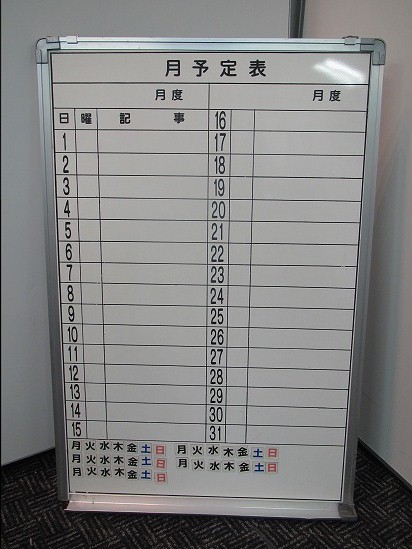 月予定表
月度 月度
日 曜 記事 16
1 17
2 18
3 19
4 20
5 21
6 22
7 23
8 24
9 25
10 26
11 27
12 28
13 29
14 30
15 31
月火水木金土日 月火水木金土日
月火水木金土日 月火水木金土日
月火水木金土日